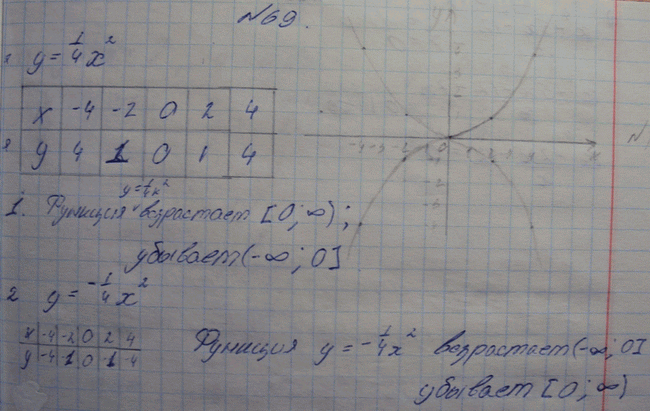 №69.
y = 1/4 x²
x -4 -2 0 2 4
y 4 1 0 1 4
y=1/4x²
1. Функция возрастает [0; ∞);
убывает (-∞; 0]
2 y = -1/4 x²
x -4 -2 0 2 4
y -4 -1 0 -1 -4
Функция y = -1/4x² возрастает (-∞; 0]
убывает [0; ∞)